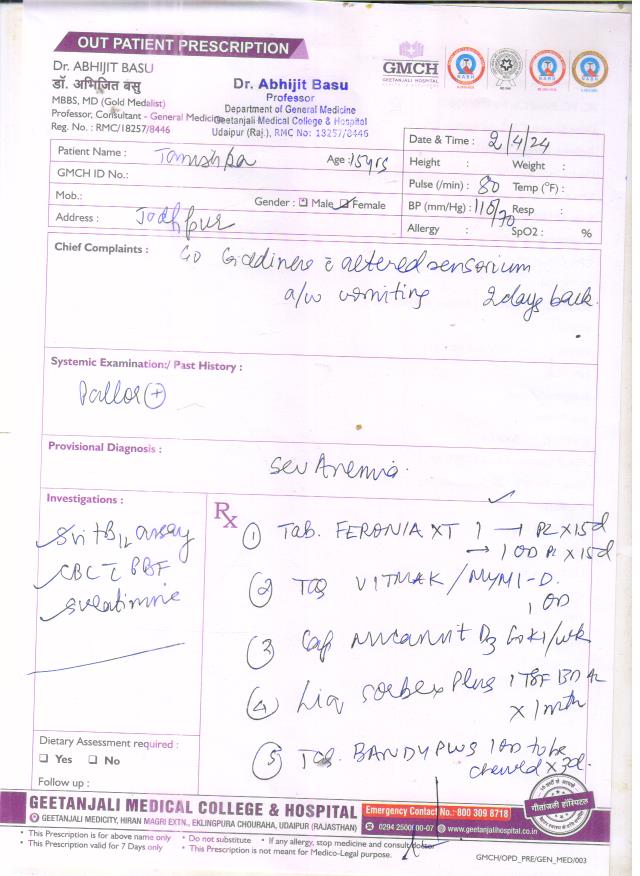 OUT PATIENT PRESCRIPTION
Dr. ABHIJIT BASU
डॉ. अभिजित बसु
MBBS, MD (Gold Medalist)
Professor, Consultant - General Medicine
Reg. No. : RMC/18257/8446
Dr. Abhijit Basu
Professor
Department of General Medicine
Geetanjali Medical College & Hospital
Udaipur (Raj.), RMC No: 18257/8446
GMCH
GEETANJALI HOSPITAL
Patient Name : Tanishka Age : 15yrs
GMCH ID No.:
Mob.: Gender : Male Female
Address : Jodhpur
Date & Time : 2/4/24
Height : Weight :
Pulse (/min) : 80 Temp (°F) :
BP (mm/Hg) : 110/70 Resp :
Allergy : SpO2 : %
Chief Complaints : altered sensorium
a/w vomiting 2 days back
Systemic Examination:/ Past History :
Pallor (+)
Provisional Diagnosis :
Anemia.
Investigations :
assay
CBC PBF
Rx
① Tab. FERONIA XT 1 → x 15d
→ 1 OD x 15d
② VITMAK / MYMI-D.
1 OD
③ Cap D3 60K 1/wk
④ Liq Plus 1 TSF BD
x 1 mth
⑤ BANDY PLUS 1 OD to be
chewed x 3d.
Dietary Assessment required :
Yes No
Follow up :
GEETANJALI MEDICAL COLLEGE & HOSPITAL
GEETANJALI MEDICITY, HIRAN MAGRI EXTN., EKLINGPURA CHOURAHA, UDAIPUR (RAJASTHAN)
Emergency Contact No.: 800 309 8718
0294 2500000-07 www.geetanjalihospital.co.in
गीतांजली हॉस्पिटल
• This Prescription is for above name only • Do not substitute • If any allergy, stop medicine and consult doctor
• This Prescription valid for 7 Days only • This Prescription is not meant for Medico-Legal purpose.
GMCH/OPD_PRE/GEN_MED/003